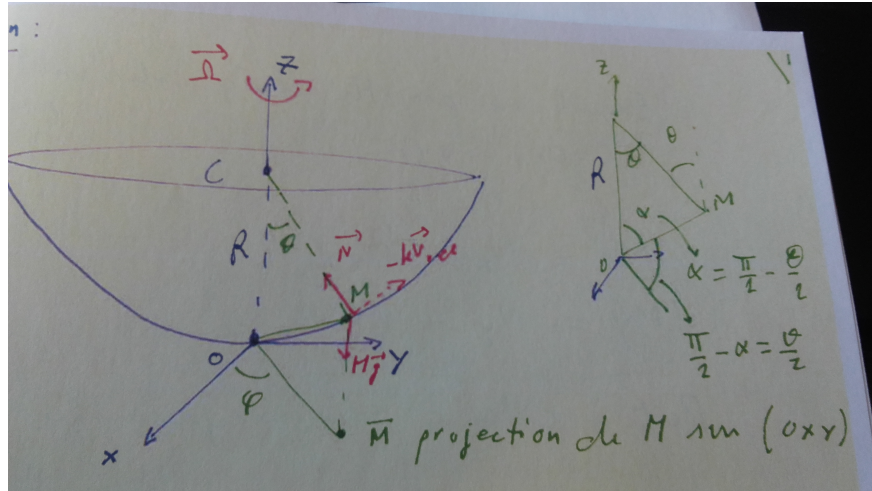 m :
Ω
Z
C
R
θ
N
-kV
M
Mg
O
Y
φ
X
M projection de M sur (OXY)
Z
R
θ
θ
M
α
O
α = π/2 - θ/2
π/2 - α = θ/2